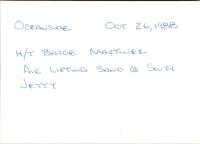 OCEANSIDE OCT 26, 1988
H/T BARGE MARTINEZ
AIR LIFTING SAND @ SOUTH
JETTY